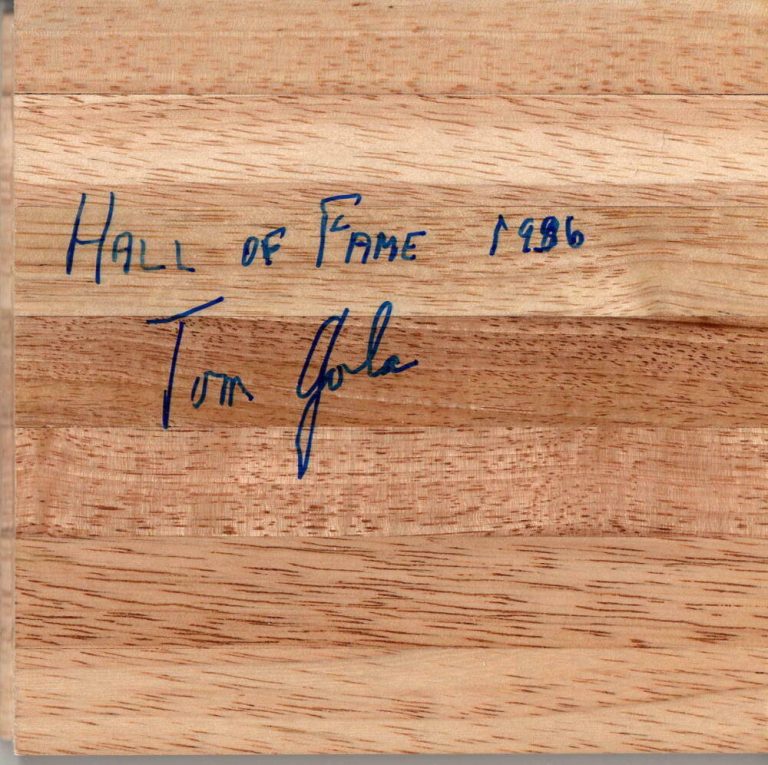 HALL OF FAME 1986
Tom Gola